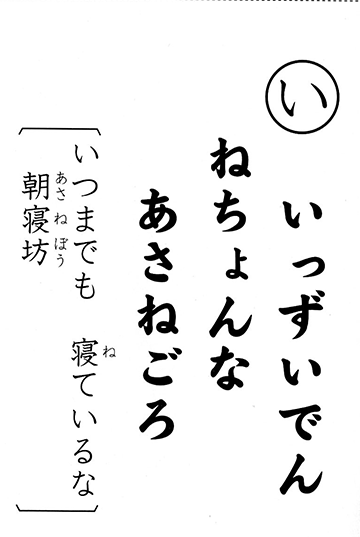 い
いっずいでん
ねちょんな
あさねごろ
いつまでも　寝ているな
ね
朝寝坊
あさねぼう